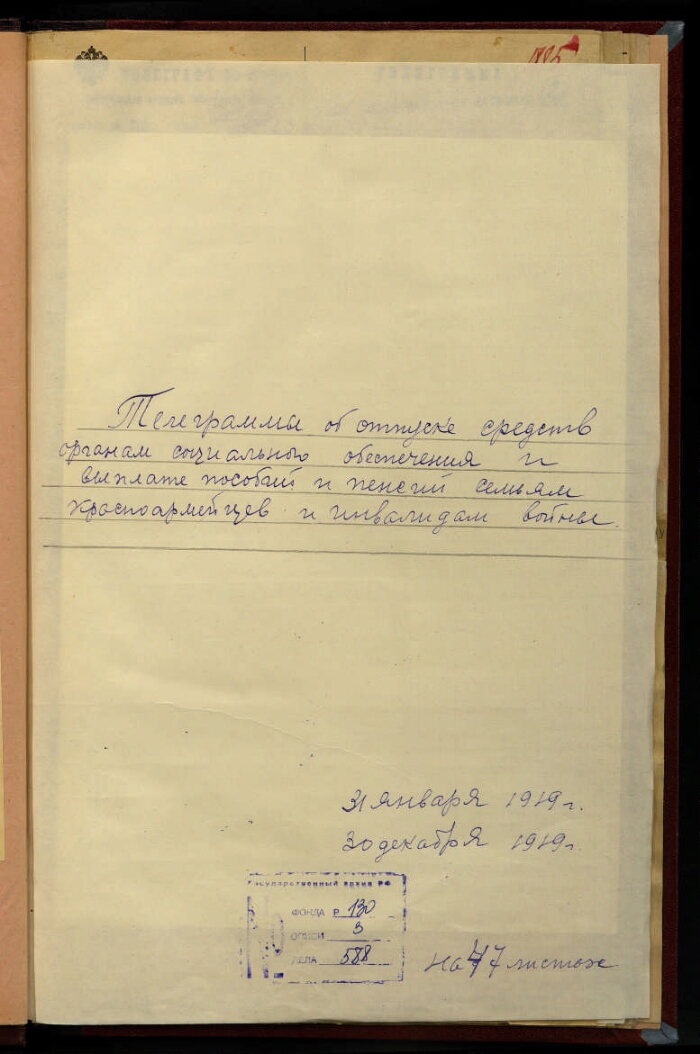 Телеграмма об отпуске средств
органам социального обеспечения и
выплате пособий и пенсий семьям
красноармейцев и инвалидам войны.
31 января 1919 г.
30 декабря 1919 г.
Государственный архив РФ
ФОНДА Р 130
ОПИСИ 3
ДЕЛА 588
на 77 листах